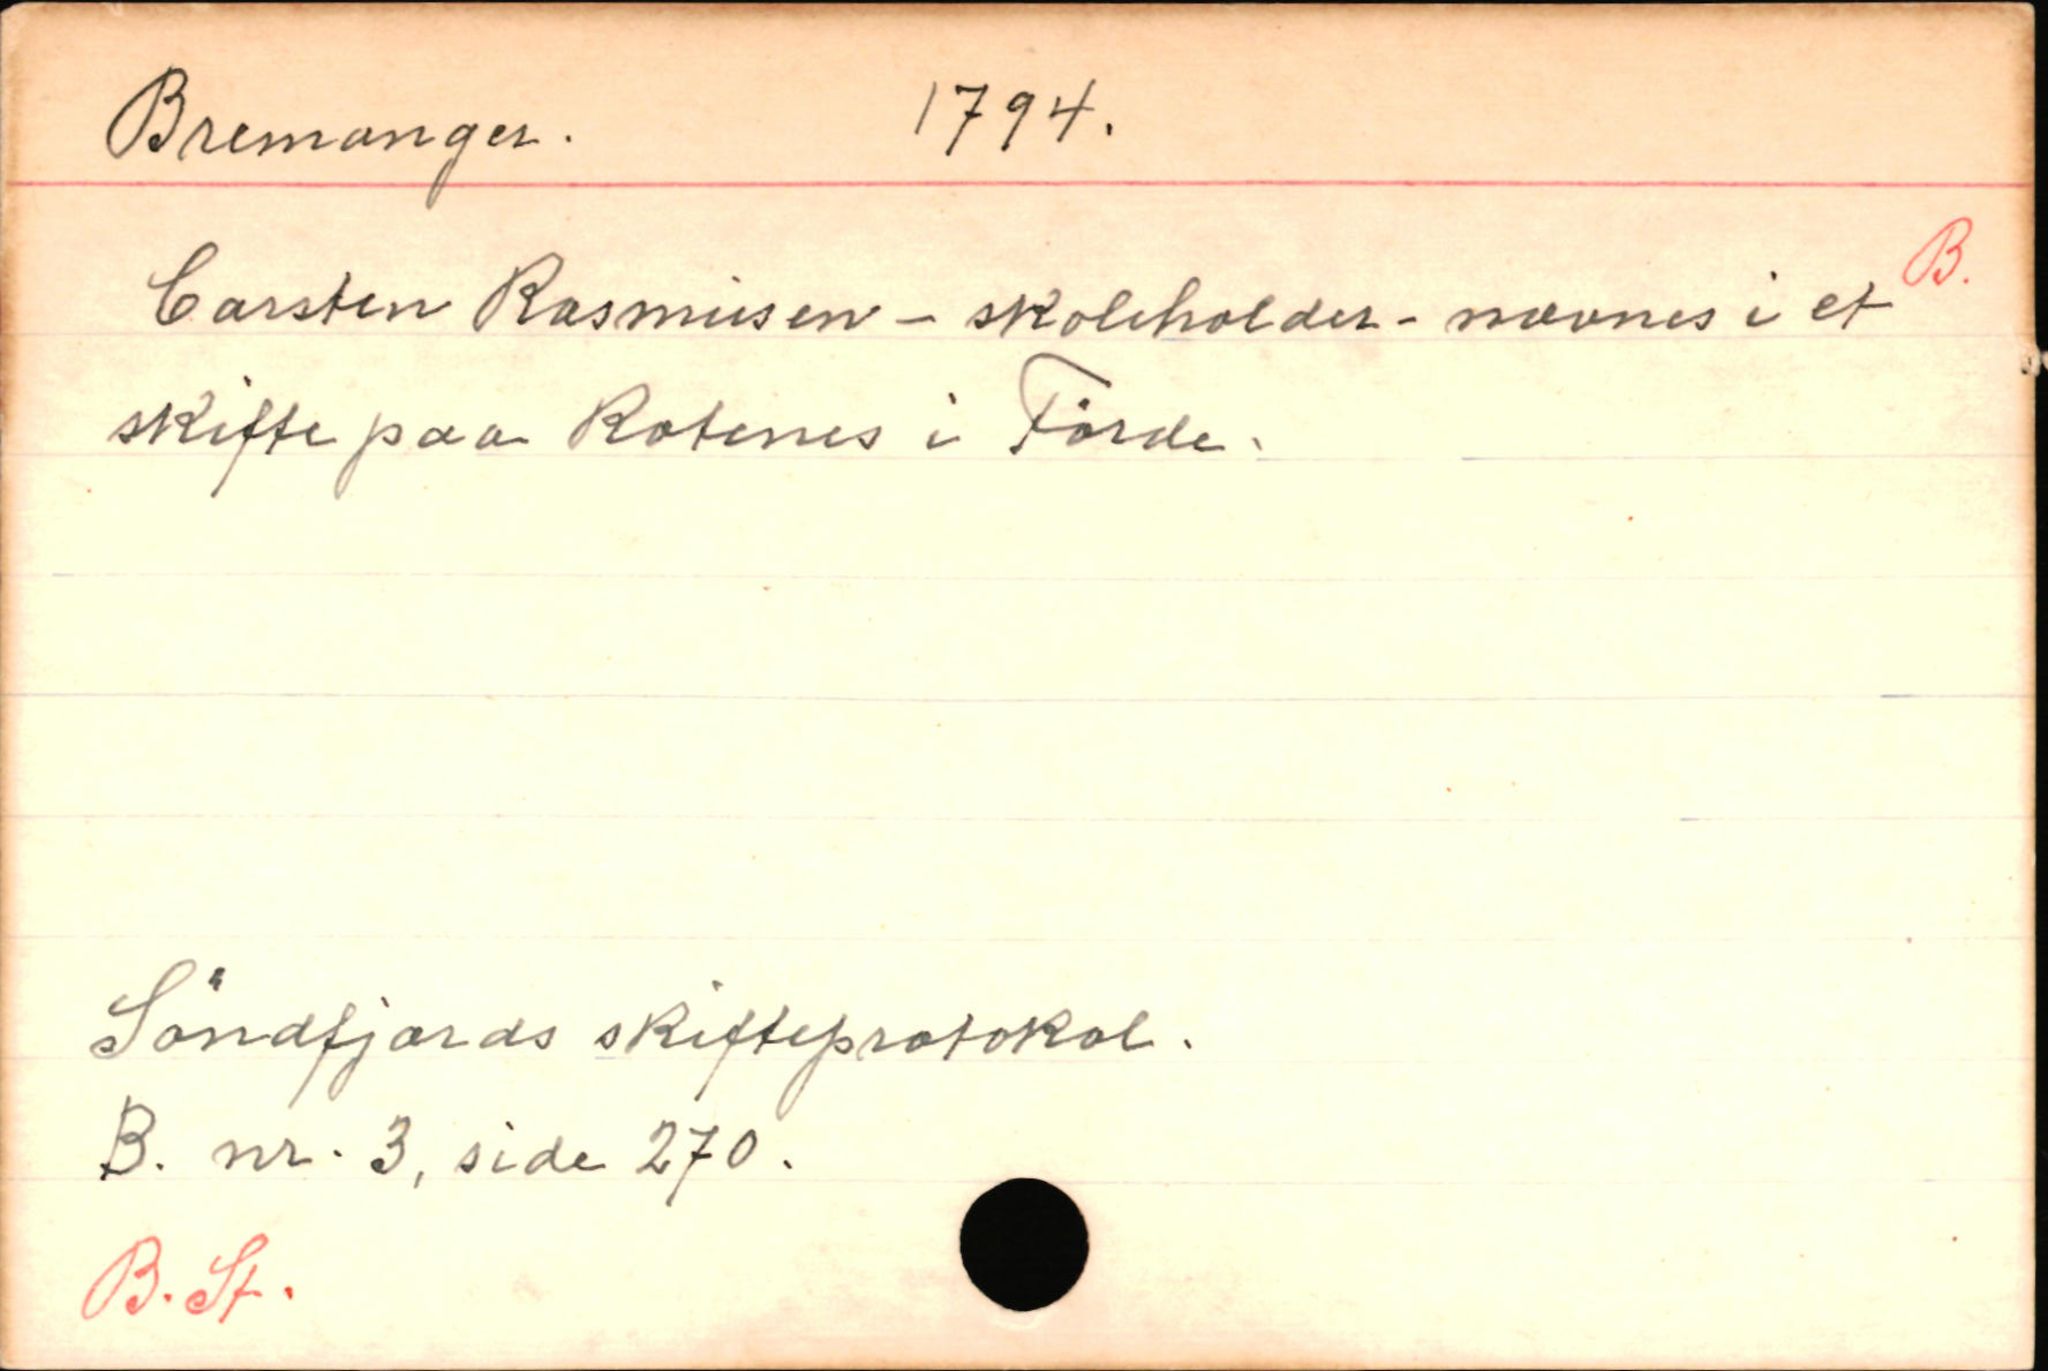 Bremanger. 1794.
B.
Carsten Rasmusen - skoleholder - nævnes i et
skifte paa Rotenes i Förde.
Söndfjords skifteprotokol.
B. nr. 3, side 270.
B. St.